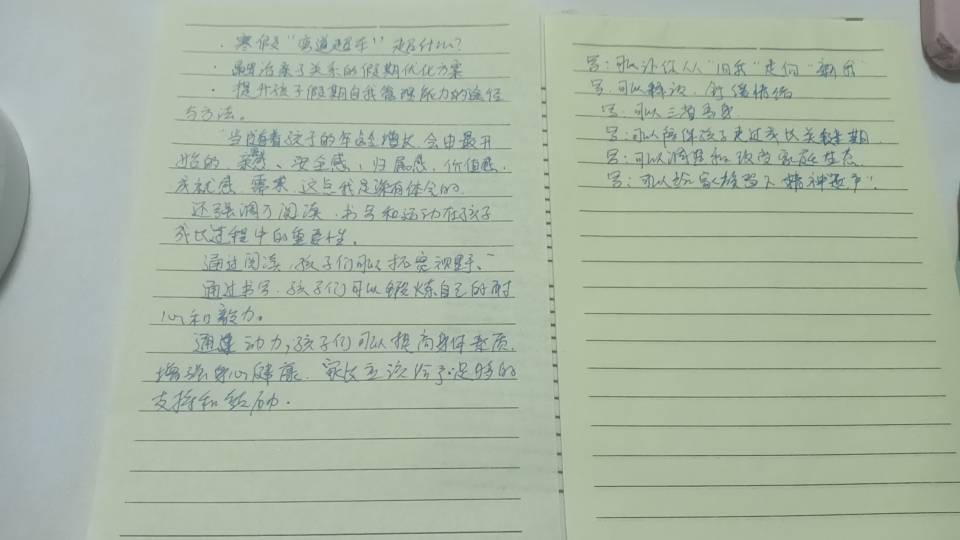 · 寒假"弯道超车"超什么?
· 最治亲子关系的假期优化方案
· 提升孩子假期自我管理能力的途径
与方法。
当随着孩子的年龄增长,会由最开
始的 、安全感、归属感,价值感,
成就感 需求,这点我是深有体会的.
还强调了阅读、书写和运动在孩子
成长过程中的重要性。
通过阅读,孩子们可以拓宽视野、
通过书写.孩子们可以锻炼自己的耐
心和毅力。
通过动力,孩子们可以提高身体素质.
增强身心健康.家长应该给予足够的
支持和鼓励.
写:可以让你从"旧我"走向"新我"
写.可以释放.舒缓情绪
写.可以三省吾身
写:可以陪伴孩子走过成长关键期.
写:可以调整和改变家庭生态
写:可以给家人留下"精神遗产".